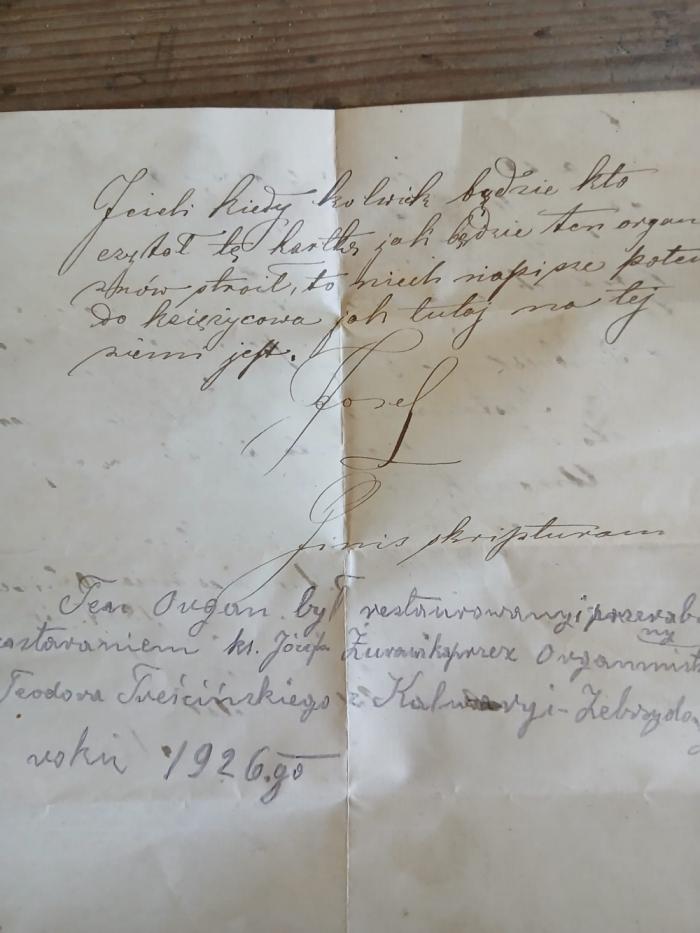 Jeżeli kiedy kolwiek będzie kto
czytał tę kartkę jak będzie ten organ
znów stroił, to niech napisze potem
do księżycowa jak tutaj na tej
ziemi jest.
Josef
Finis skripturam
Ten Organ był restaurowany i przerabia
ny
staraniem ks. Józefa Żurawika przez Organmist
Teodora Treścińskiego z Kalwaryi-Zebrzydo
roku 1926.go